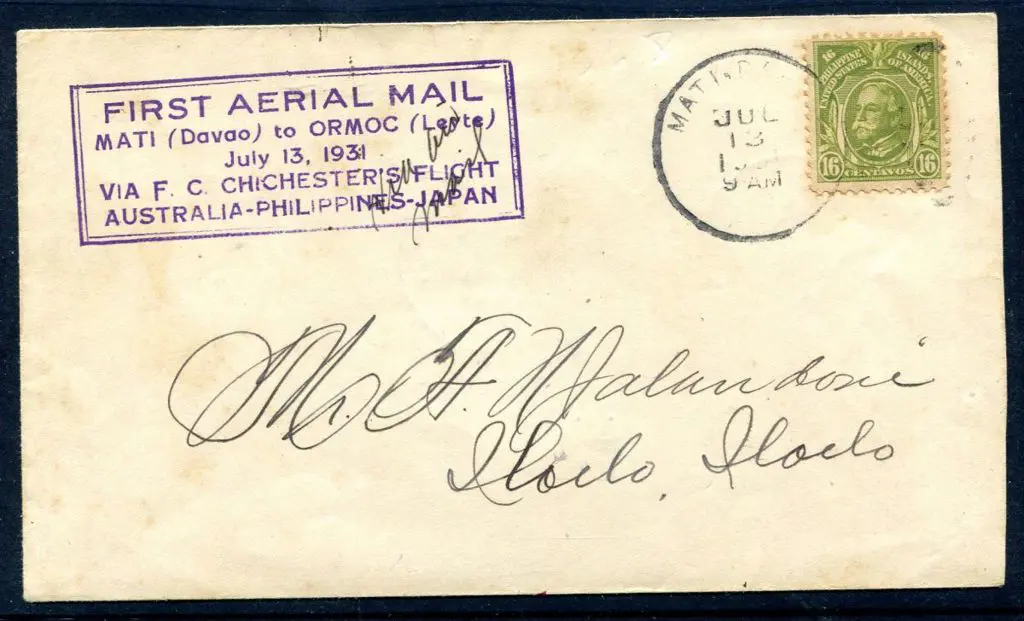 FIRST AERIAL MAIL
MATI (Davao) to ORMOC (Leyte)
July 13, 1931
VIA F. C. CHICHESTER'S FLIGHT
AUSTRALIA-PHILIPPINES-JAPAN
mail
MATI, D
JUL
13
9 AM
16 16
PHILIPPINE ISLANDS
UNITED STATES OF AMERICA
16 CENTAVOS 16
Mr. A
Iloilo, Iloilo